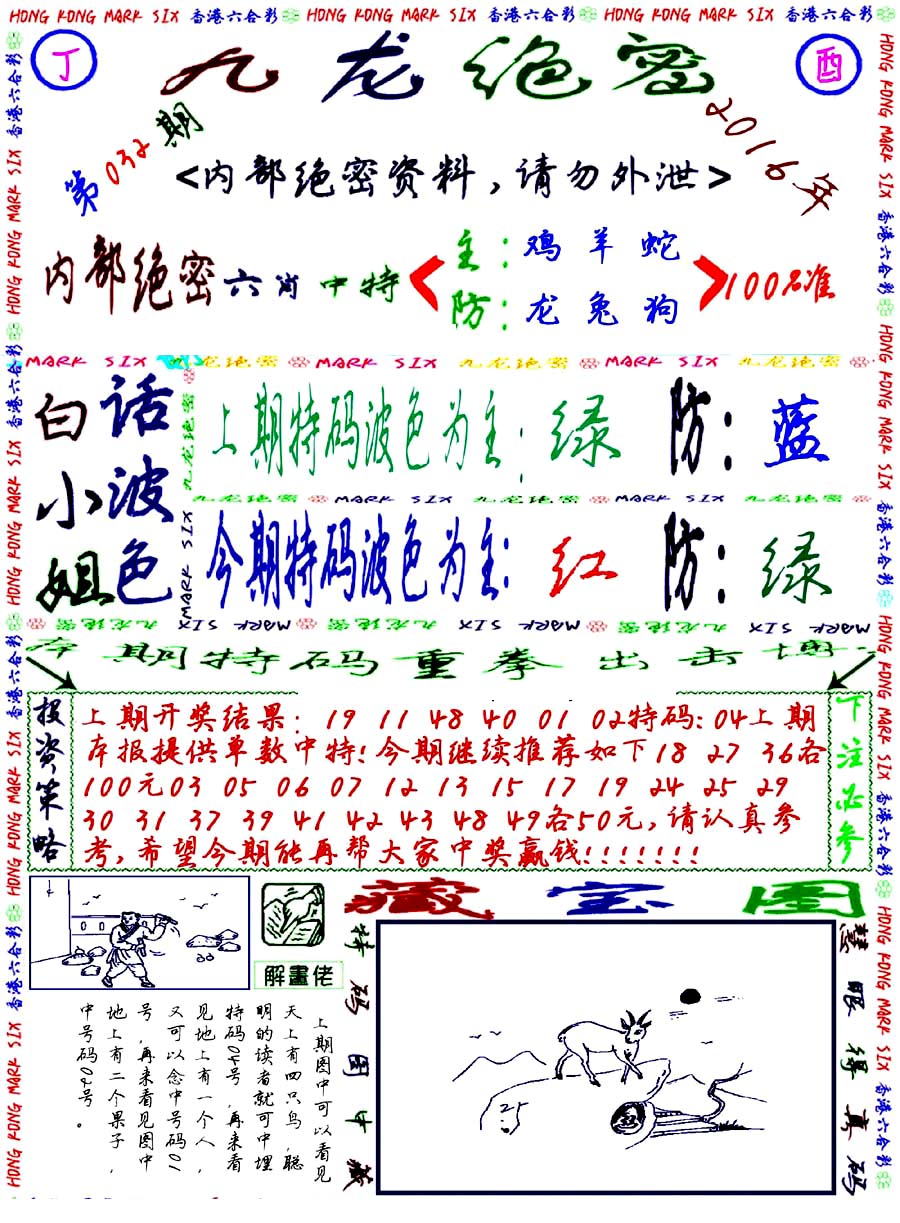 HONG KONG MARK SIX 香港六合彩 HONG KONG MARK SIX 香港六合彩 HONG KONG MARK SIX 香港六合彩
丁
九龙绝密
酉
第032期
2016年
<内部绝密资料,请勿外泄>
内部绝密六肖中特
主:鸡羊蛇
防:龙兔狗
100%准
MARK SIX 九龙绝密 MARK SIX 九龙绝密 MARK SIX 九龙绝密
白话
小波
姐色
上期特码波色为主:绿 防:蓝
九龙绝密 MARK SIX 九龙绝密 MARK SIX 九龙绝密
今期特码波色为主:红 防:绿
MARK SIX 九龙绝密 MARK SIX 九龙绝密 MARK SIX 九龙绝密
本期特码重拳出击博一
投资策略
上期开奖结果: 19 11 48 40 01 02特码:04上期
本报提供单数中特!今期继续推荐如下18 27 36各
100元03 05 06 07 12 13 15 17 19 24 25 29
30 31 37 39 41 42 43 48 49各50元,请认真参
考,希望今期能再帮大家中奖赢钱!!!!!!!
下注必参
藏宝图
解畫佬
上期图中可以看见
天上有四只鸟,聪
明的读者就可中埋
特码04号,再来看
见地上有一个人,
又可以念中号码01
号,再来看见图中
地上有二个果子,
中号码02号。
特码图中藏
慧眼得真码